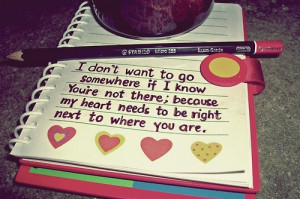 STABILO
I don't want to go
somewhere if I know
You're not there; because
my heart needs to be right
next to where you are.